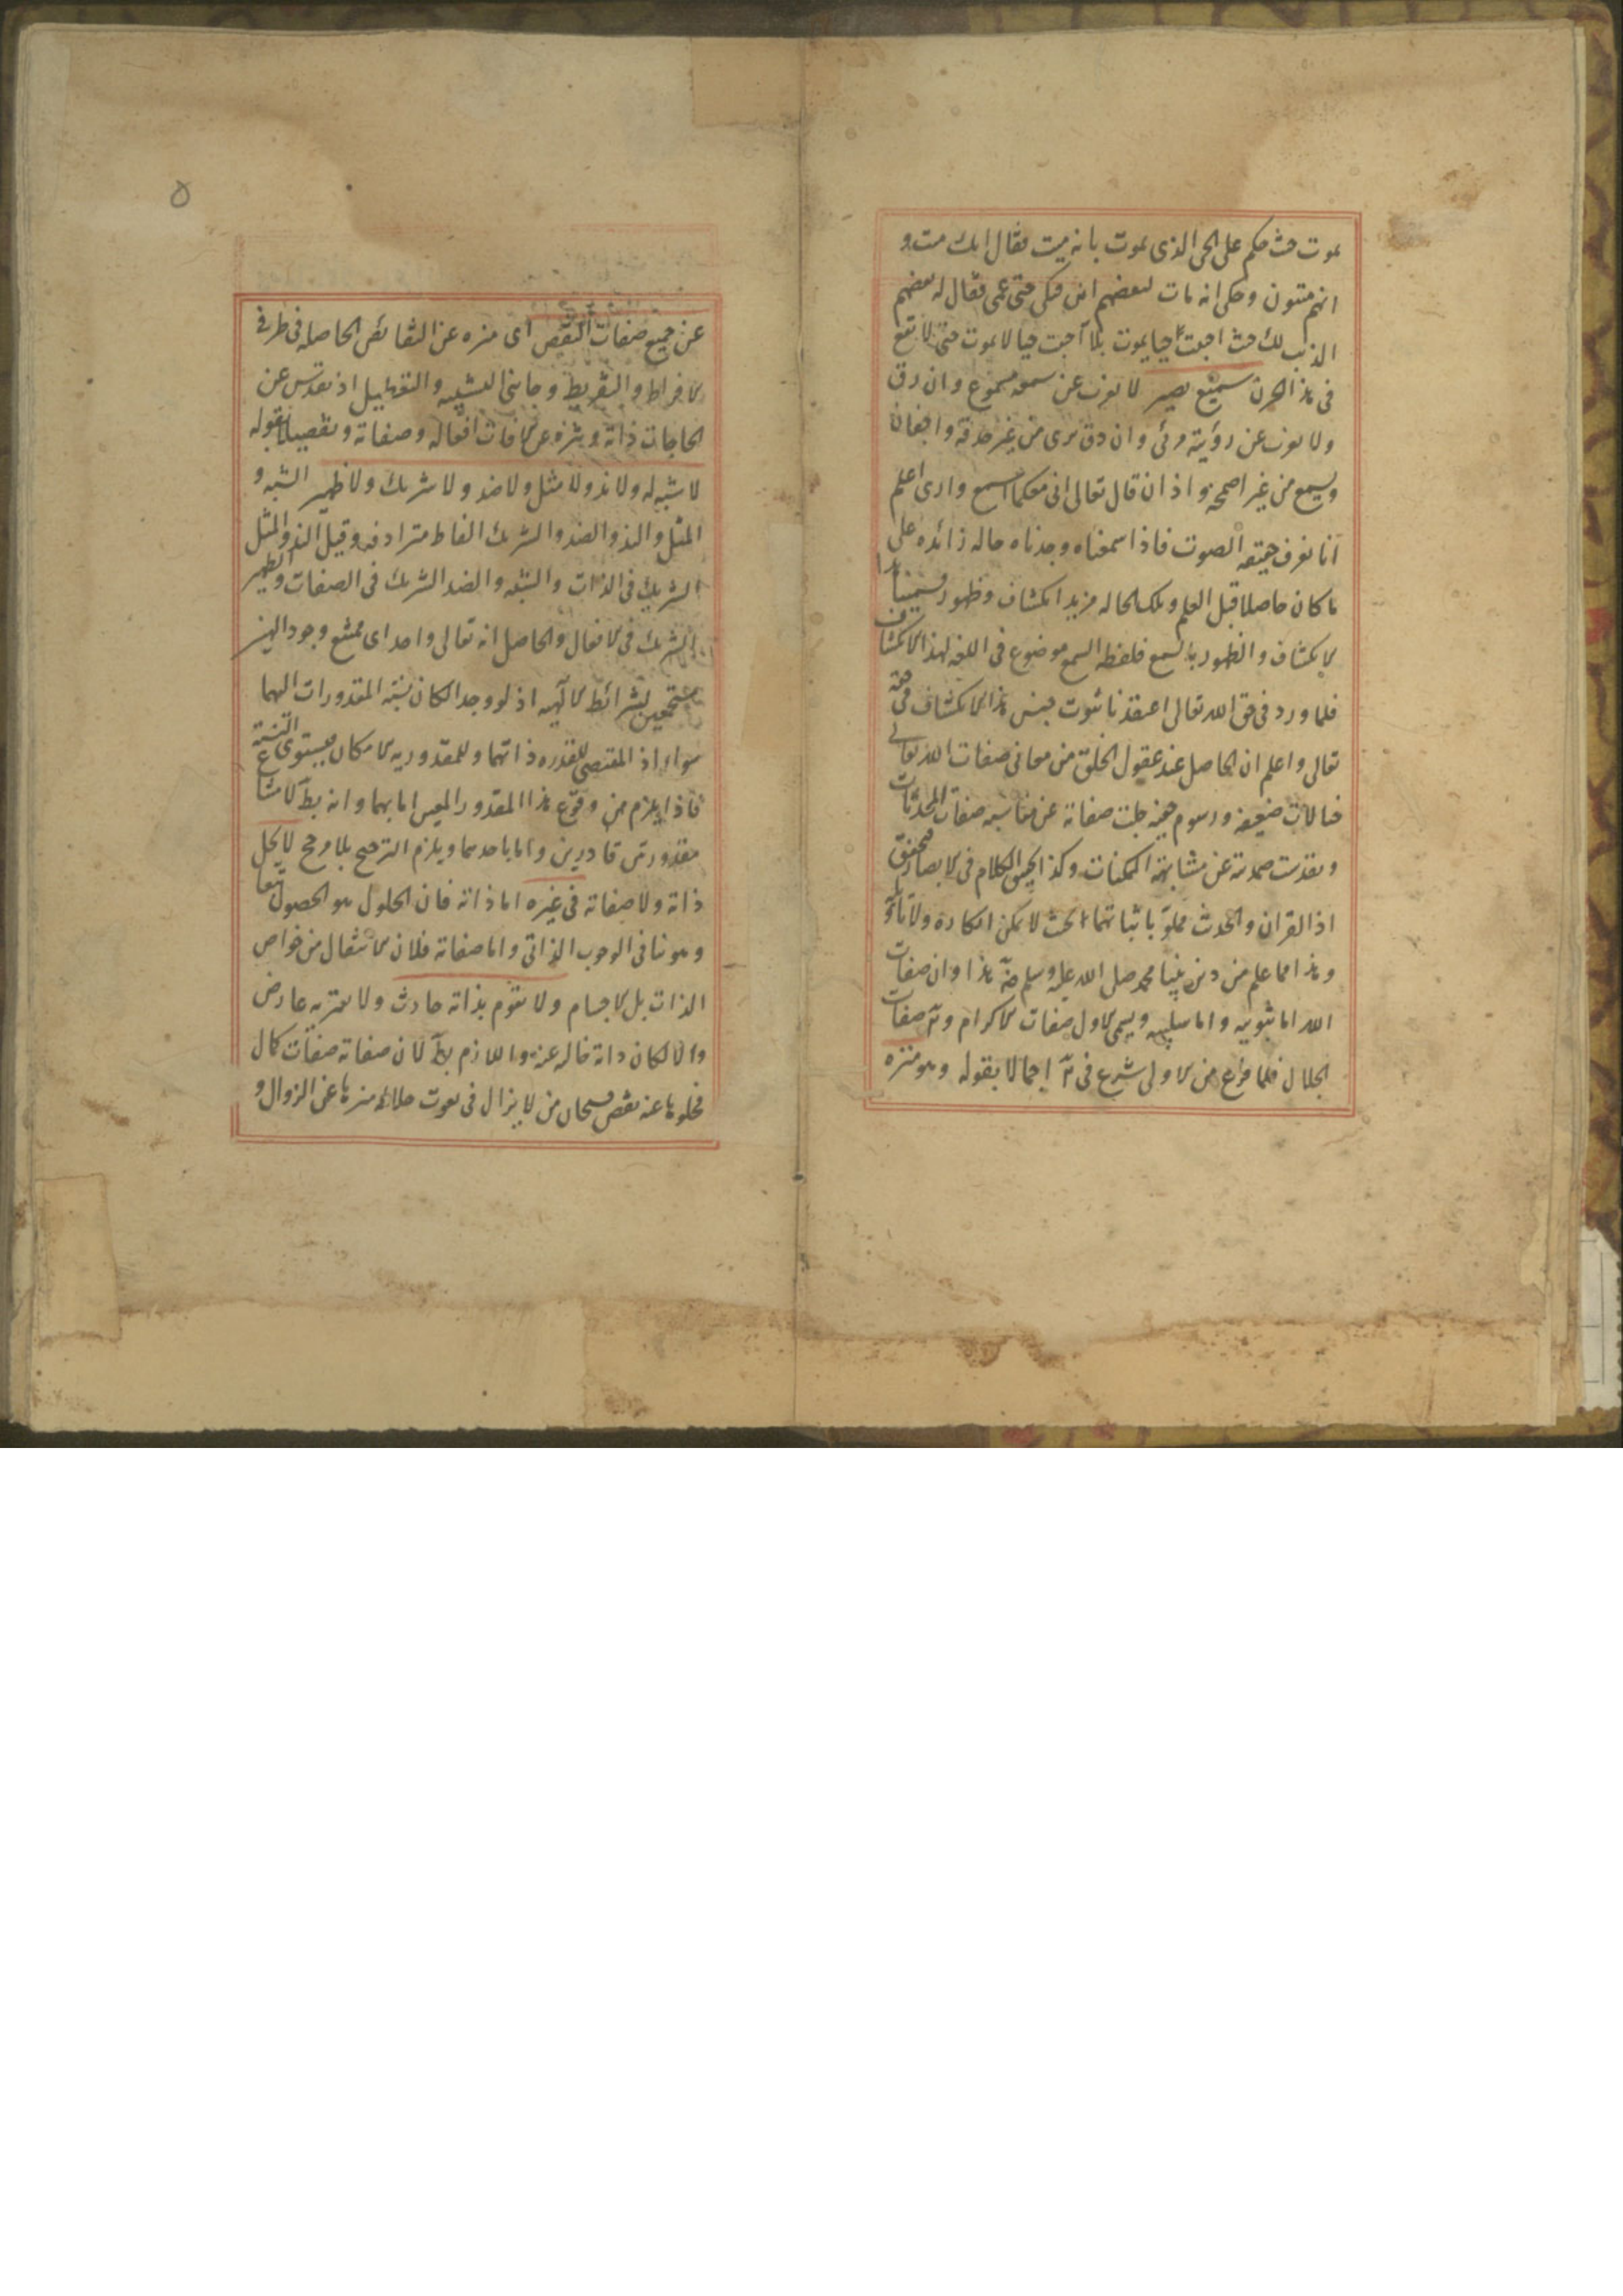 يموت حيث حكم على الحى الذى يموت بانه ميت فقال انك ميت و
انهم ميتون وحكى انه مات لبعضهم ابن فبكى حتى عمى فقال له بعضهم
الذنب لك حيث احببت حيا يموت هلا احببت حيا لا يموت حتى لا تقع
فى هذا الحزن سميع بصير لا يعزب عن سمعه مسموع وان دق
ولا يعزب عن رؤيته مرئى وان دق يرى من غير حدقة واجفان
ويسمع من غير اصمخة واذان قال تعالى اننى معكما اسمع وارى اعلم
انا نعرف حقيقة الصوت فاذا سمعناه وجدناه حالة زائدة على
ما كان حاصلا قبل العلم وتلك الحالة مزيد انكشاف وظهور فسمينا هذا
الانكشاف والظهور بالسمع فلفظة السمع موضوع فى اللغة لهذا الانكشاف
فلما ورد فى حق الله تعالى اعتقدنا ثبوت جنس هذا الانكشاف فى حقه
تعالى واعلم ان الحاصل عند عقول الخلق من معانى صفات الله تعالى
خيالات ضعيفة ورسوم خفية جلت صفاته عن مناسبة صفات المحدثات
وتقدست صمديته عن مشابهة الممكنات وكذا تحقيق الكلام فى الابصار
اذ القران والحديث مملو باثباتهما بحيث لا يمكن انكاره ولا تاويله
وهذا مما علم من دين نبينا محمد صلى الله عليه وسلم ضة هذا وان صفات
الله اما ثبوتية واما سلبية ويسمى الاول صفات الاكرام و صفات
الجلال فلما فرغ من الاولى شرع فى اجمالا بقوله وهو منزه
٥
عن جميع صفات النقص اى منزه عن النقائص الحاصلة فى طرفى
الافراط والتفريط وجانبى التشبيه والتعطيل اذ تقدس عن
الحاجات ذاته وينزه عن الافات افعاله وصفاته وتفصيلا بقوله
لا شبيه له ولا ند ولا مثل ولا ضد ولا شريك ولا ظهير الشبه و
المثل والند والضد والشريك الفاظ مترادفة وقيل الند والمثل
الشريك فى الذات والشبه والضد الشريك فى الصفات والظهير
الشريك فى الافعال والحاصل انه تعالى واحد اى ممتنع وجود الهين
مستجمعين لشرائط الالهية اذ لو وجد الكان نسبة المقدورات اليهما
سواء اذ المقتضى للقدرة ذاتهما وللمقدورية الامكان فيستوى النسبة
فاذا يلزم من وقوع هذا المقدور المعين اما بهما وانه بط لامتناع
مقدور بين قادرين واما باحدهما ويلزم الترجيح بلا مرجح لا يحل
ذاته ولا صفاته فى غيره اما ذاته فان الحلول هو الحصول تبعا
وهو ينافى الوجوب الذاتى واما صفاته فلان الانتقال من خواص
الذات بل الاجسام ولا يقوم بذاته حادث ولا يعتريه عارض
والا لكان ذاته خالية عنه واللازم بط لان صفاته صفات كمال
فخلوها عنه نقص سبحان من لا يزال فى نعوت جلاله منزها عن الزوال و